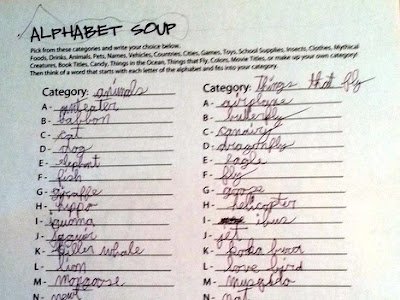 ALPHABET SOUP
Pick from these categories and write your choice below.
Foods, Drinks, Animals, Pets, Names, Vehicles, Countries, Cities, Games, Toys, School Supplies, Insects, Clothes, Mythical
Creatures, Book Titles, Candy, Things in the Ocean, Things that Fly, Colors, Movie Titles, or make up your own category!
Then think of a word that starts with each letter of the alphabet and fits into your category.
Category: animals
A - anteater
B - babbon
C - cat
D - dog
E - elephant
F - fish
G - giraffe
H - hippo
I -
J -
K - killer whale
L - lion
M -
N - newt
Category: Things that fly
A - airplane
B - butterfly
C - canairy
D - dragonfly
E - eagle
F - fly
G - goose
H - helicopter
I - ibus
J - jet
K - koka burra
L - love bird
M -
N - nat